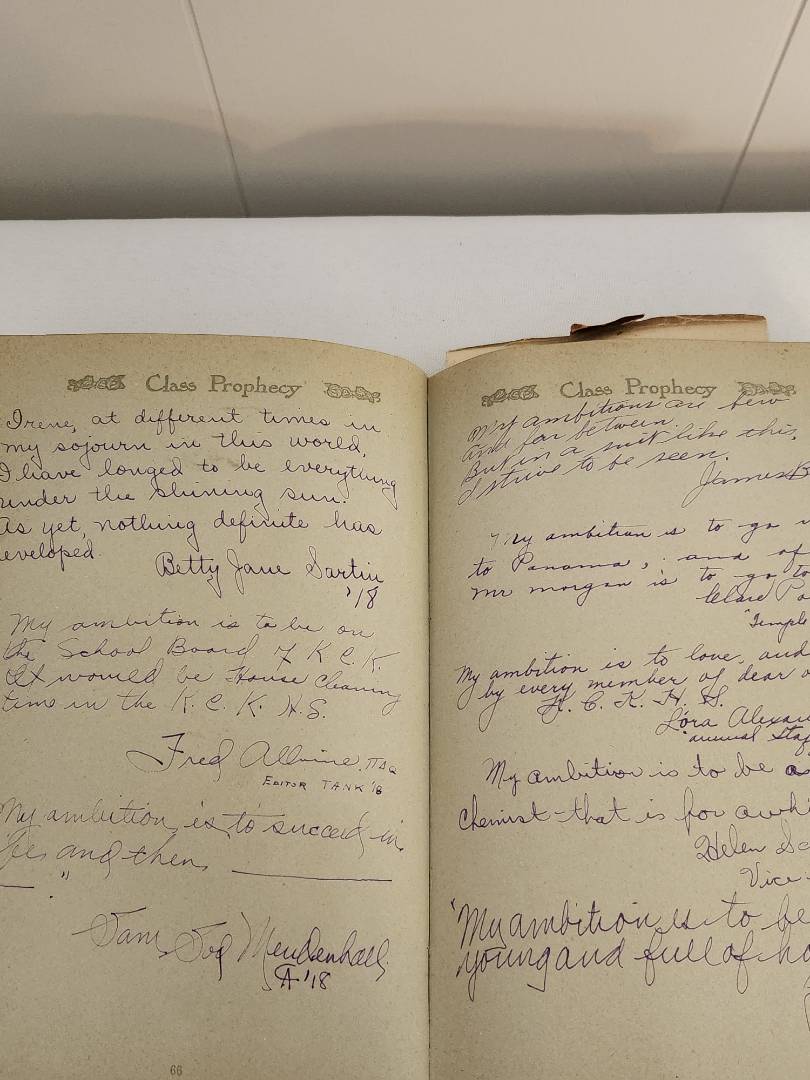 Class Prophecy
Irene, at different times in
my sojourn in this world,
I have longed to be everything
under the shining sun.
As yet, nothing definite has
eveloped.
Betty Jane Sartin
'18
My ambition is to be on
the School Board of K.C.K.
It would be House Cleaning
time in the K.C.K. H.S.
Fred Allvine
EDITOR TANK '18
My ambition is to succeed in
and then
"
Mendenhall
A '18
66
Class Prophecy
My ambitions are few
and far between.
But in a suit like this,
I strive to be seen.
James B
My ambition is to go
to Panama, and of
Mr Morgan is to go to
Clare
"Temple
My ambition is to love, and
by every member of dear
K. C. K. H. S.
Lora Alexan
"annual Staf
My ambition is to be a
Chemist - that is for awhi
Helen Sc
Vice
"My ambition is to be
young and full of